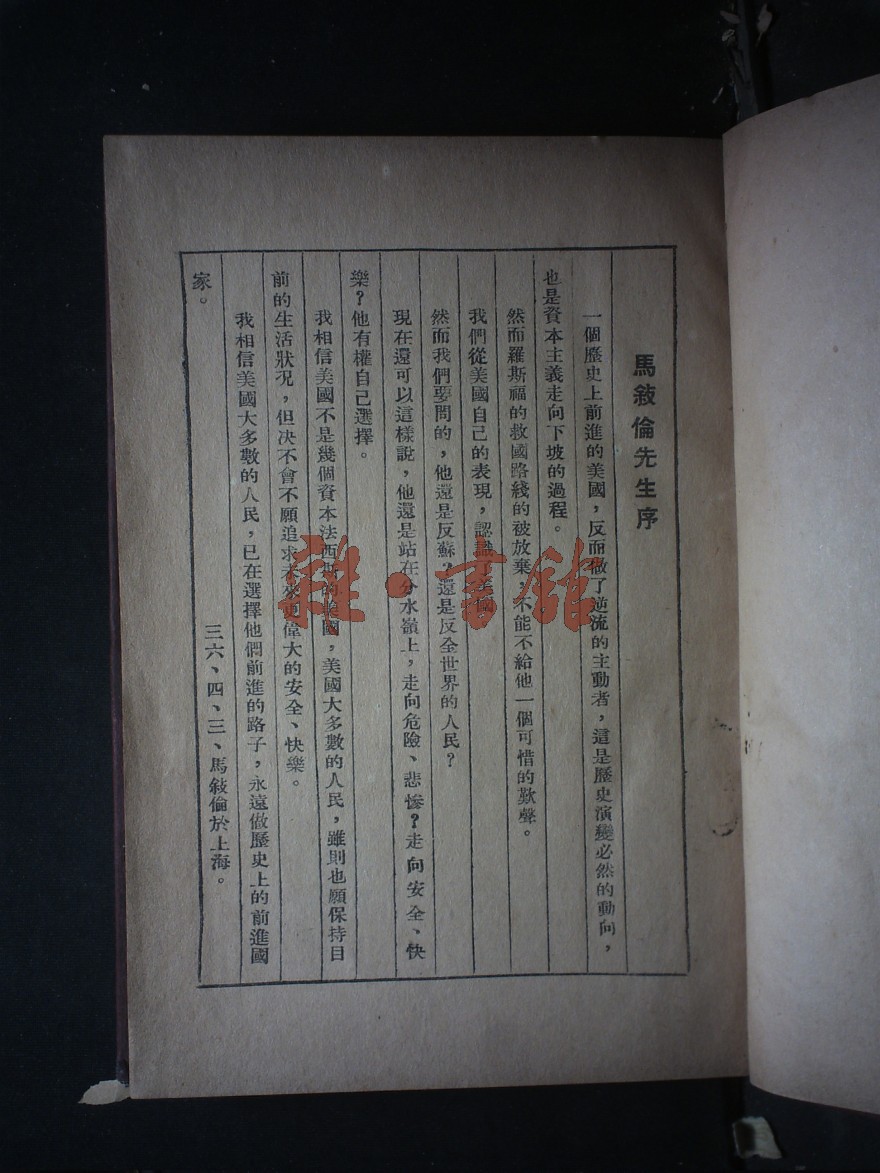 馬敍倫先生序
一個歷史上前進的美國，反而做了逆流的主動者，這是歷史演變必然的動向，
也是資本主義走向下坡的過程。
然而羅斯福的救國路綫的被放棄，不能不給他一個可惜的歎聲。
我們從美國自己的表現，認識了美國
然而我們要問的，他還是反蘇？還是反全世界的人民？
現在還可以這樣說，他還是站在分水嶺上，走向危險、悲慘？走向安全、快
樂？他有權自己選擇。
我相信美國不是幾個資本法西斯的美國，美國大多數的人民，雖則也願保持目
前的生活狀況，但决不會不願追求未來更偉大的安全、快樂。
我相信美國大多數的人民，已在選擇他們前進的路子，永遠做歷史上的前進國
家。
三六、四、三、馬敍倫於上海。
雜·書館